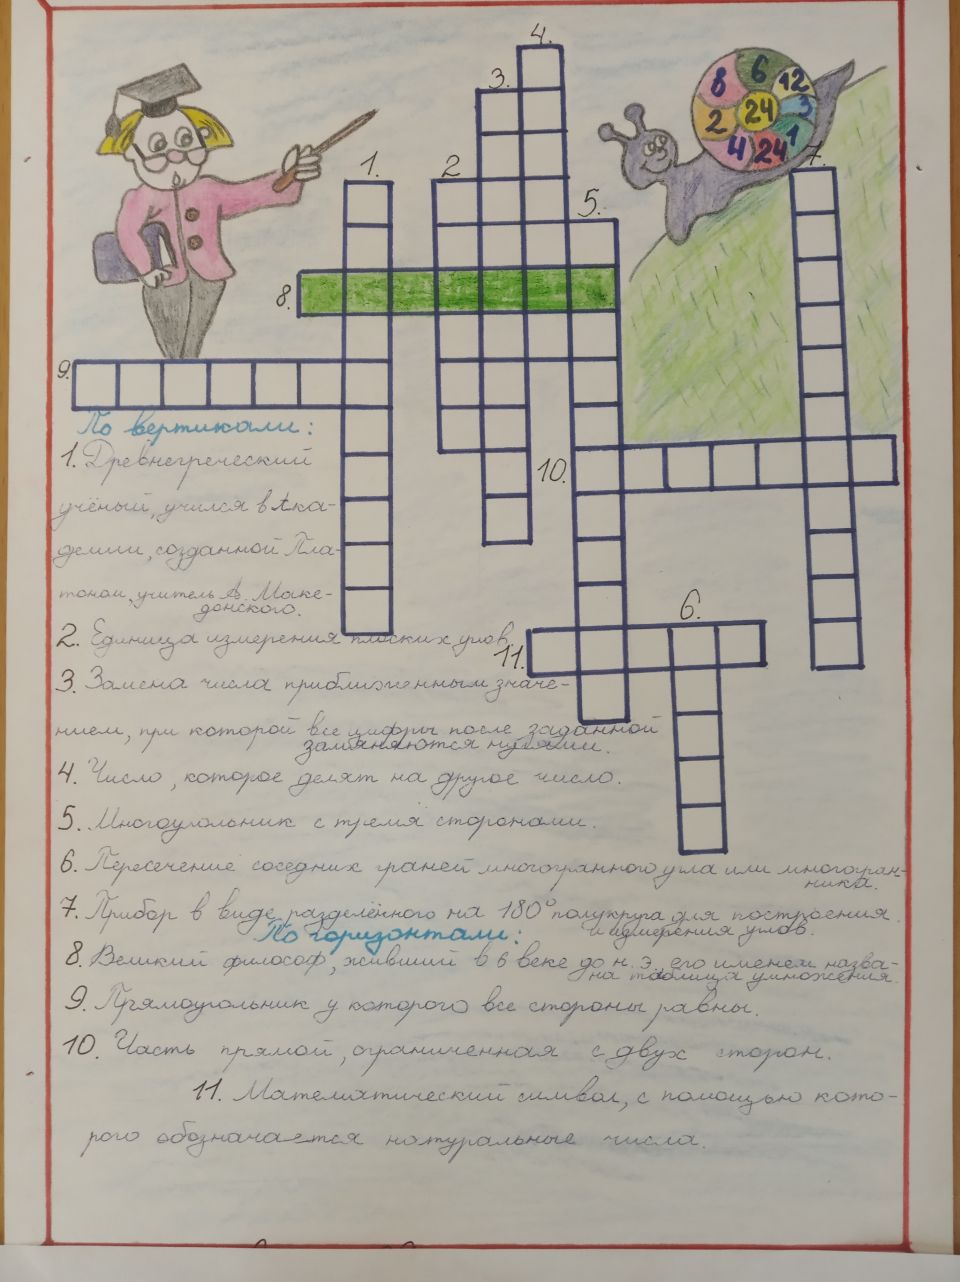 4.
3.
8 6 12
2 24 3
4 24 1
1.
2
7.
5.
8.
9.
По вертикали:
1. Древнегреческий
учёный, учился в Ака-
демии, созданной Пла-
тоном, учитель А. Маке-
донского.
10.
6.
2. Единица измерения плоских углов.
11.
3. Замена числа приближенным значе-
нием, при которой все цифры после заданной
заменяются нулями.
4. Число, которое делят на другое число.
5. Многоугольник с тремя сторонами.
6. Пересечение соседних граней многогранного угла или многогран-
ника.
7. Прибор в виде разделённого на 180° полукруга для построения
и измерения углов.
По горизонтали:
8. Великий философ, живший в 6 веке до н. э., его именем назва-
на таблица умножения.
9. Прямоугольник у которого все стороны равны.
10. Часть прямой, ограниченная с двух сторон.
11. Математический символ, с помощью кото-
рого обозначается натуральные числа.